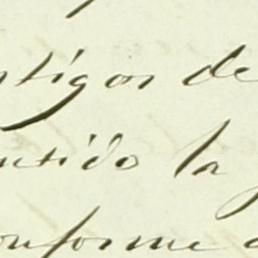 ntigos de
ntido la
onforme